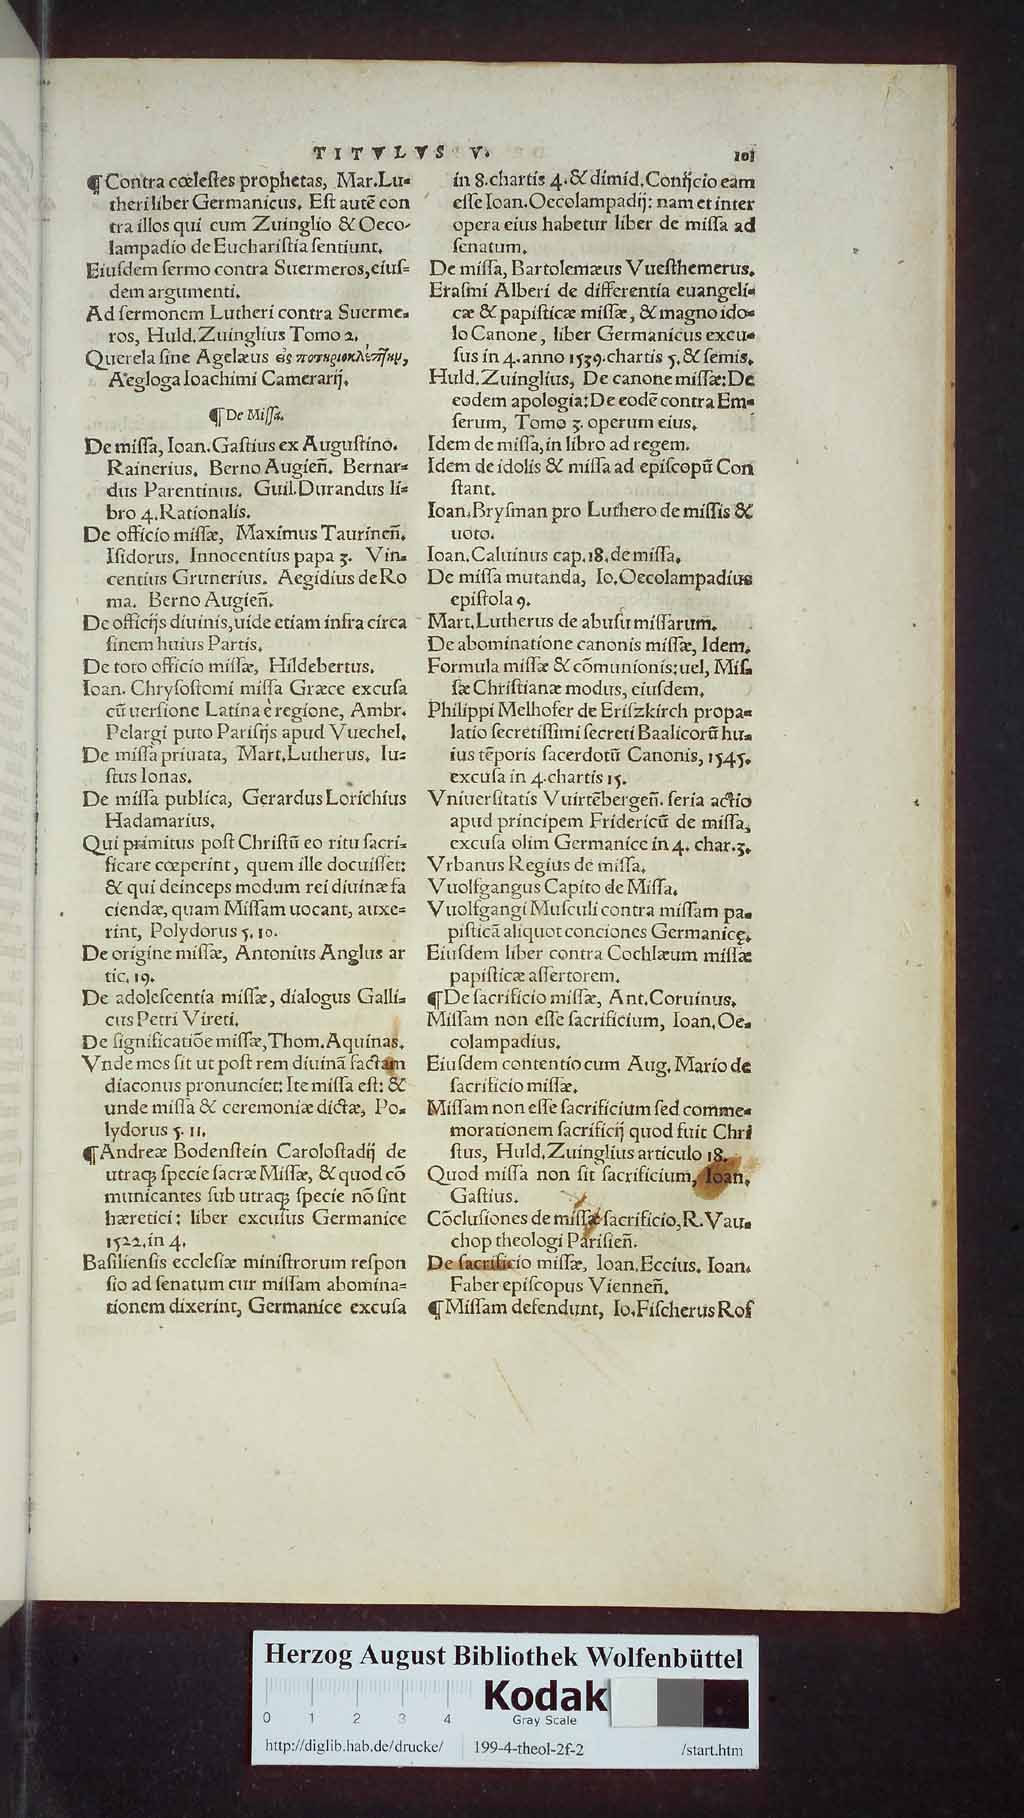 TITVLVS V.
101
¶ Contra cœlestes prophetas, Mar. Lu-
theri liber Germanicus. Est autē con
tra illos qui cum Zuinglio & Oeco-
lampadio de Eucharistia sentiunt.
Eiusdem sermo contra Suermeros, eius-
dem argumenti.
Ad sermonem Lutheri contra Suerme-
ros, Huld. Zuinglius Tomo 2.
Querela siue Agelæus εἰς
Aegloga Ioachimi Camerarij.
¶ De Missa.
De missa, Ioan. Gastius ex Augustino.
Rainerius. Berno Augieñ. Bernar-
dus Parentinus. Guil. Durandus li-
bro 4. Rationalis.
De officio missæ, Maximus Taurineñ.
Isidorus. Innocentius papa 3. Vin-
centius Grunerius. Aegidius de Ro
ma. Berno Augieñ.
De officijs diuinis, uide etiam infra circa
finem huius Partis.
De toto officio missæ, Hildebertus.
Ioan. Chrysostomi missa Græce excusa
cū uersione Latina è regione, Ambr.
Pelargi puto Parisijs apud Vuechel.
De missa priuata, Mart. Lutherus. Iu-
stus Ionas.
De missa publica, Gerardus Lorichius
Hadamarius.
Qui primitus post Christū eo ritu sacri-
ficare cœperint, quem ille docuisset:
& qui deinceps modum rei diuinæ fa
ciendæ, quam Missam uocant, auxe-
rint, Polydorus 5. 10.
De origine missæ, Antonius Anglus ar
tic. 19.
De adolescentia missæ, dialogus Galli-
cus Petri Vireti.
De significatiõe missæ, Thom. Aquinas.
Vnde mos sit ut post rem diuinã factam
diaconus pronunciet: Ite missa est: &
unde missa & ceremoniæ dictæ, Po-
lydorus 5. 11.
¶ Andreæ Bodenstein Carolostadij de
utraq; specie sacræ Missæ, & quod cõ
municantes sub utraq; specie nõ sint
hæretici: liber excusus Germanice
1522. in 4.
Basiliensis ecclesiæ ministrorum respon
sio ad senatum cur missam abomina-
tionem dixerint, Germanice excusa
in 8. chartis 4. & dimid. Conijcio eam
esse Ioan. Oecolampadij: nam et inter
opera eius habetur liber de missa ad
senatum.
De missa, Bartolemæus Vuesthemerus.
Erasmi Alberi de differentia euangeli-
cæ & papisticæ missæ, & magno ido-
lo Canone, liber Germanicus excu-
sus in 4. anno 1539. chartis 5. & semis.
Huld. Zuinglius, De canone missæ: De
eodem apologia: De eodē contra Em-
serum, Tomo 3. operum eius.
Idem de missa, in libro ad regem.
Idem de idolis & missa ad episcopū Con
stant.
Ioan. Brysman pro Luthero de missis &
uoto.
Ioan. Caluinus cap. 18. de missa.
De missa mutanda, Io. Oecolampadius
epistola 9.
Mart. Lutherus de abusu missarum.
De abominatione canonis missæ, Idem.
Formula missæ & cõmunionis: uel, Mis-
sæ Christianæ modus, eiusdem.
Philippi Melhofer de Eriszkirch propa-
latio secretissimi secreti Baalicorū hu-
ius tēporis sacerdotū Canonis, 1545.
excusa in 4. chartis 15.
Vniuersitatis Vuirtēbergeñ. seria actio
apud principem Fridericū de missa,
excusa olim Germanice in 4. char. 3.
Vrbanus Regius de missa.
Vuolfgangus Capito de Missa.
Vuolfgangi Musculi contra missam pa-
pisticã aliquot conciones Germanicę.
Eiusdem liber contra Cochlæum missæ
papisticæ assertorem.
¶ De sacrificio missæ, Ant. Coruinus.
Missam non esse sacrificium, Ioan. Oe-
colampadius.
Eiusdem contentio cum Aug. Mario de
sacrificio missæ.
Missam non esse sacrificium sed comme-
morationem sacrificij quod fuit Chri
stus, Huld. Zuinglius articulo 18.
Quod missa non sit sacrificium, Ioan.
Gastius.
Cõclusiones de missæ sacrificio, R. Vau-
chop theologi Parisieñ.
De sacrificio missæ, Ioan. Eccius. Ioan.
Faber episcopus Vienneñ.
¶ Missam defendunt, Io. Fischerus Rof
Herzog August Bibliothek Wolfenbüttel
0 1 2 3 4
Kodak
Gray Scale
http://diglib.hab.de/drucke/ 199-4-theol-2f-2 /start.htm